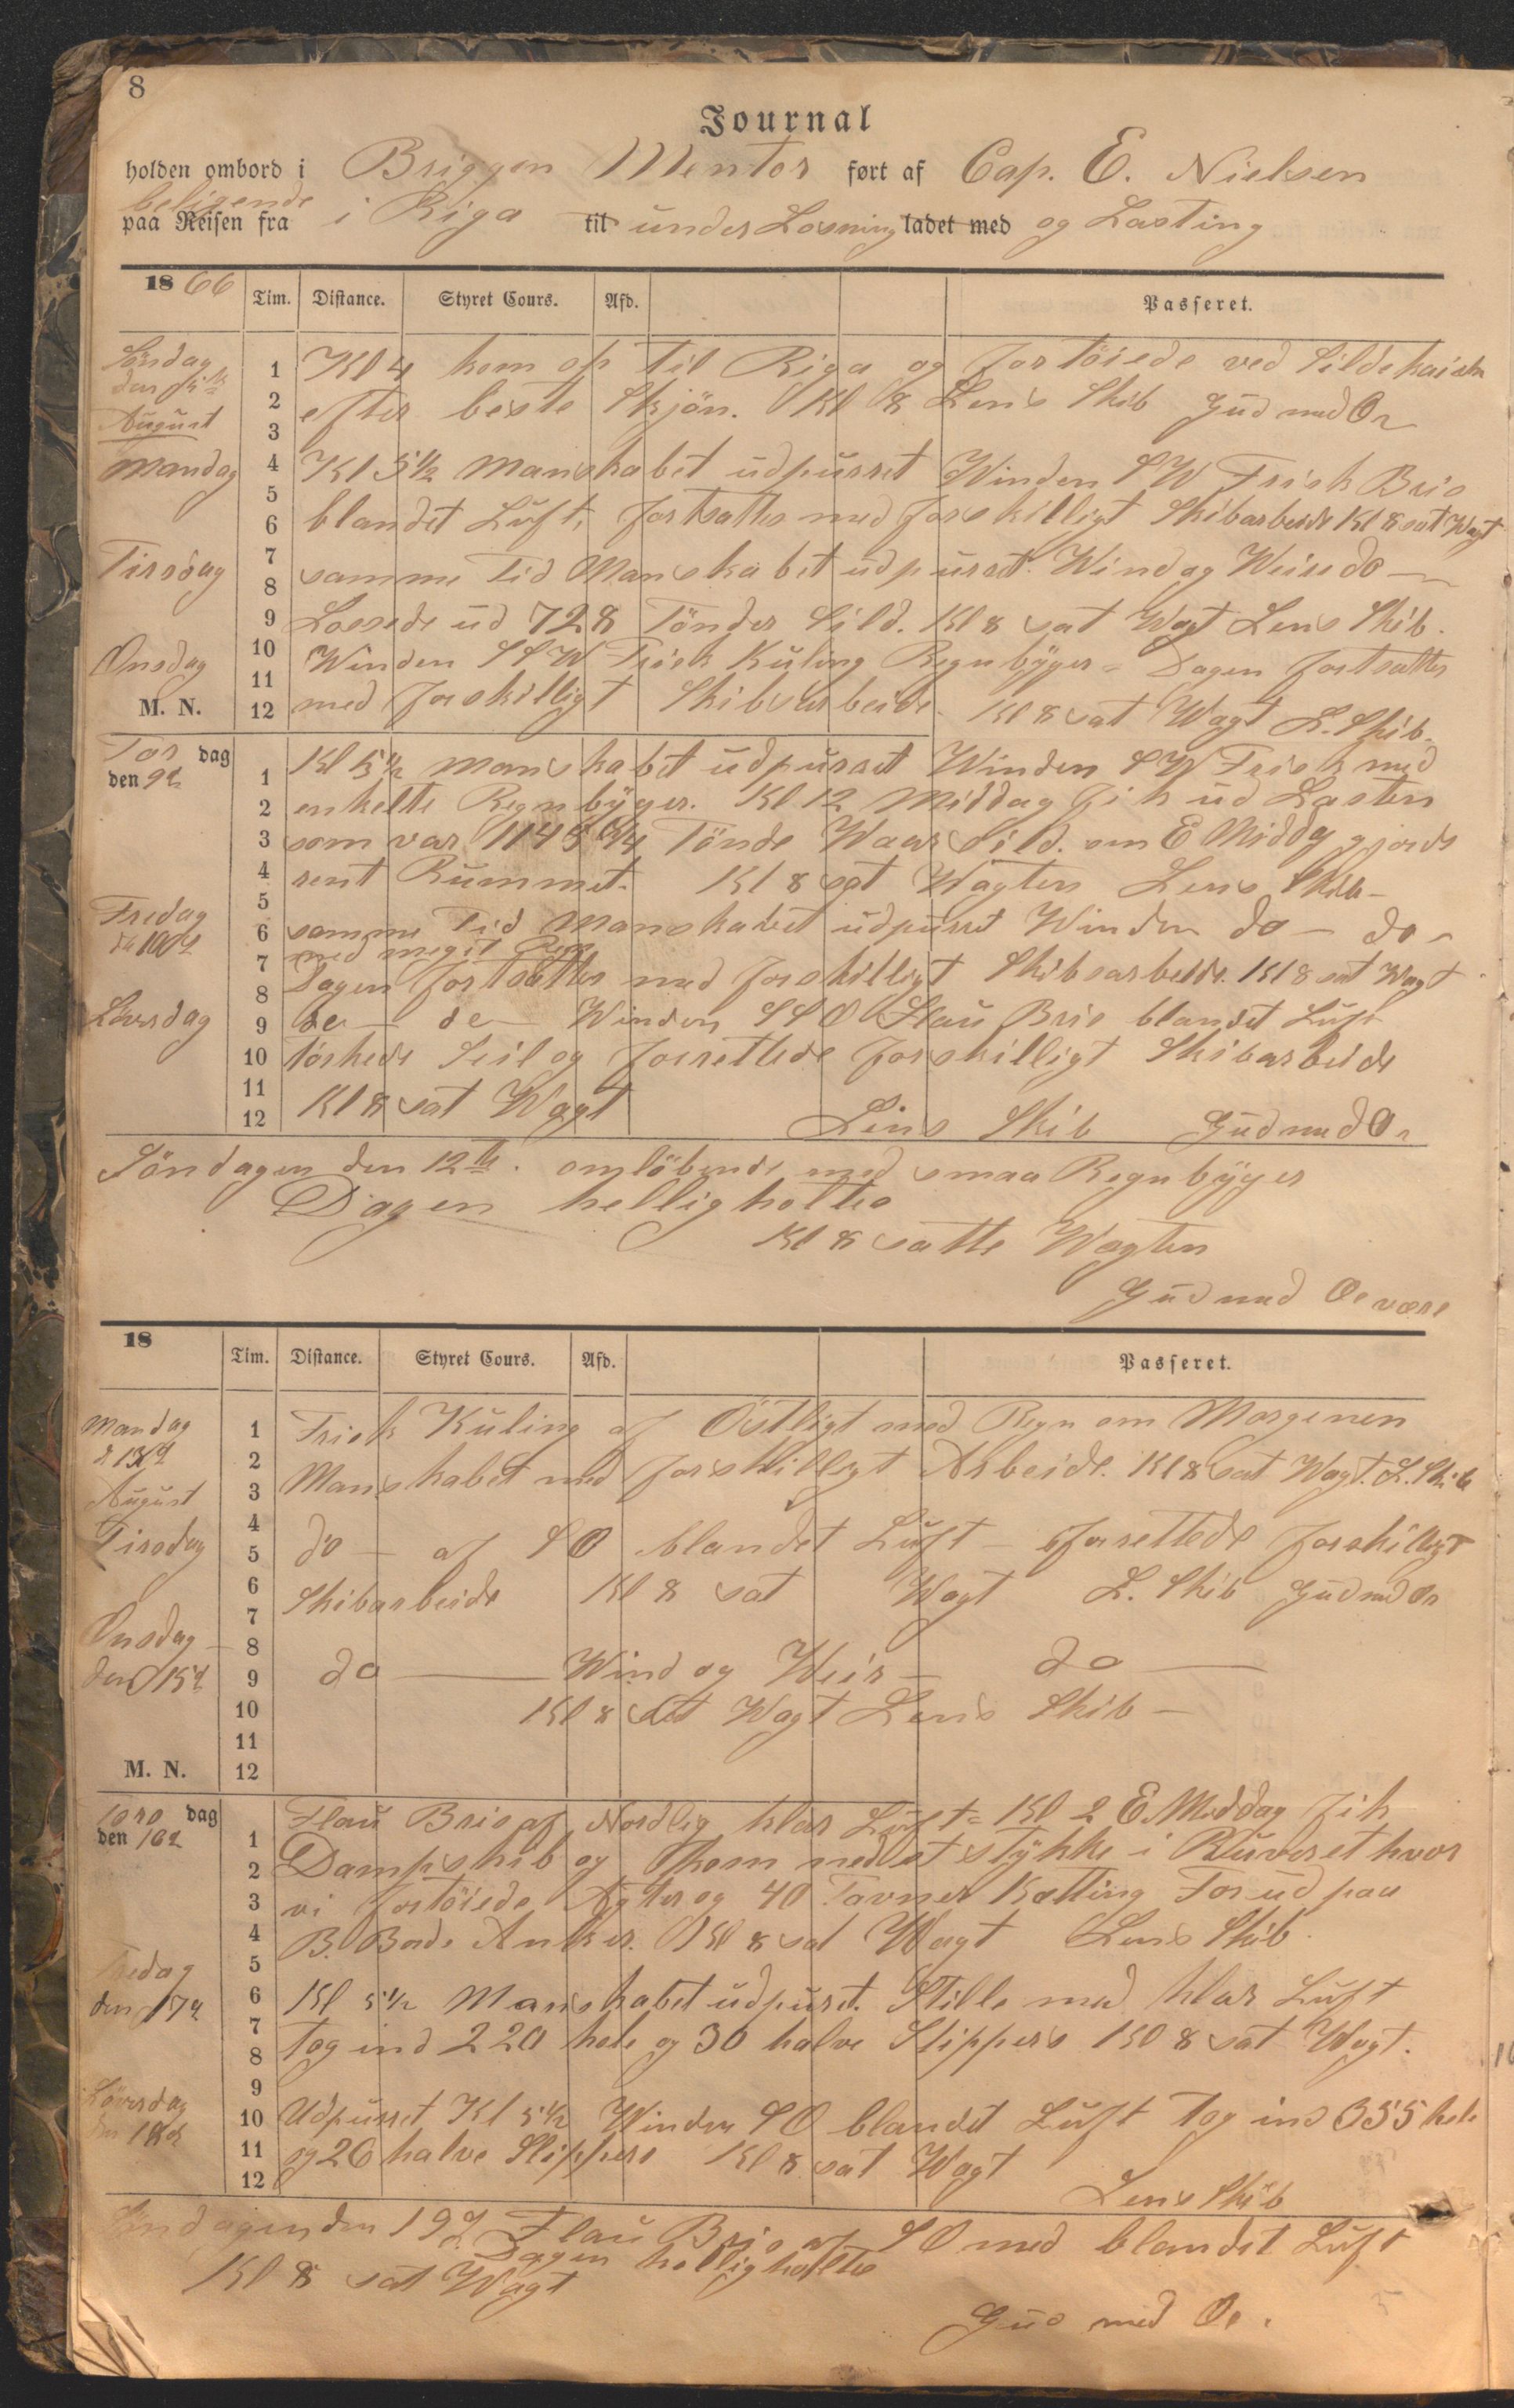 8
Journal
holden ombord i Briggen Mentor ført af Cap. E. Nielsen
beligende
paa Reisen fra i Riga til under Losning ladet med og Lasting
1866 Tim. Distance. Styret Cours. Afd. Passeret.
Söndag 1 Kl 4 kom op til Riga og fortöiede ved Sildekaien
den 5te 2 efter beste Skjön. Kl 8 Lens Skib Gud med Os
August 3
Mandag 4 Kl 5½ Manskabet udpurret Winden SW Frisk Bris
5
6 blandet Luft, fortsattes med forskilligt Skibarbeide Kl 8 sat Wagt
Tirsdag 7 samme Tid Manskabet udpurret. Wind og Weir do
8
9 Lossede ud 728 Tönder Sild. Kl 8 sat Wagt Lens Skib.
Onsdag 10 Winden SSW Frisk Kuling Regnbyger - Dagen fortsattes
11
M. N. 12 med forskilligt Skibsarbeide. Kl 8 sat Wagt L. Skib.
Tors dag
den 9d 1 Kl 5½ Manskabet udpurret Winden SW Frisk med
2 enkelte Regnbyger. Kl 12 Middag fik ud Lasten
3 som var 1145¾ Tönde Waar Sild. om E Middg gjorde
4 rent Rummet. Kl 8 sat Wagten Lens Skib -
5
Fredag 6 samme Tid Manskabet udpurret Winden do - do -
d 10d med meget Regn
7
8 Dagen fortsattes med forskilligt Skibsarbeide. Kl 8 sat Wagt
Löversdag 9 do - do - Winden SSO Flau Bris blandet Luft
10 Törkede Seil og forrettede forskilligt Skibarbeide
11
12 Kl 8 sat Wagt Lens Skib Gud med Os
Söndagen den 12te. omlöbende med smaa Regnbyger
Dagen helligholtes
Kl 8 satte Wagten
Gud med Os være
18 Tim. Distance. Styret Cours. Afd. Passeret.
Mandag 1 Frisk Kuling af Östligt med Regn om Morgenen
d 13d 2
August 3 Manskabet med forskilligt Arbeide. Kl 8 sat Wagt. L. Skib
4
Tirsdag 5 do - af SO blandet Luft - forrettede forskilligt
6 Skibarbeide Kl 8 sat Wagt L. Skib Gud med Os
7
Onsdag 8
den 15d 9 do Wind og Weir - do
10 Kl 8 sat Wagt Lens Skib -
11
M. N. 12
Tors dag Flau Bris af Nordlig klar Luft - Kl 2 E. Middag fik
den 16d 1
2 Dampskib og kom ned et stykke i Ruveret hvor
3 vi fortöiede Agter og 40 Favner Kætting Forud paa
4 B. Bords Anker. Kl 8 sat Wagt Lens Skib
5
Fredag
den 17d 6 Kl 5½ Manskabet udpurret. Stille med klar Luft
7
8 Tog ind 220 hele og 30 halve Slippers Kl 8 sat Wagt.
9
Löversdag 10 Udpurret Kl 5½ Winden SO blandet Luft Tog ind 355 hele
den 18d 11 og 26 halve Slippers Kl 8 sat Wagt
12 Lens Skib
Söndagen den 19d Flau Bris af SO med blandet Luft
Dagen helligholtes
Kl 8 sat Wagt
Gud med Os.